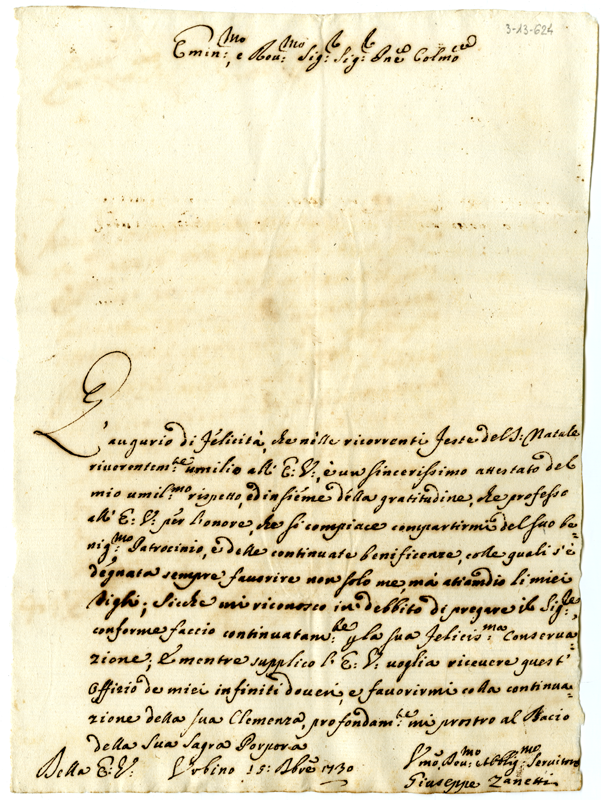 3-13-624
Emin:mo, e Rev:mo Sig:r Sig:r Pne Colmo
L'augurio di felicità, che nelle ricorrenti feste del S: Natale
riverentem:te umilio all'E: V:, è un sincerissimo attestato del
mio umil:mo rispetto, ed insiéme della gratitudine, che professo
all'E: V: per l'onore, che si compiace compartirmi del suo be=
nig:mo Patrocinio, e delle continuate beneficenze, colle quali s'è
degnata sempre favorire non solo me, má atiandio li miei
figli; Sicche mi riconosco in debbito di pregare il Sig:re,
conforme faccio continuatam:te p la sua felicis:ma Conserva=
zione; E mentre supplico l'E: V: voglia ricevere quest'
Offizio de miei infiniti doveri, e favorirmi colla continua=
zione della sua Clemenza, profondam:te mi prostro al Bacio
della Sua Sagra Porpora
Della E: V: Urbino 15: Xbre 1730
Vmo, Dev:mo Obblig:mo Servitore
Giuseppe Zanetti